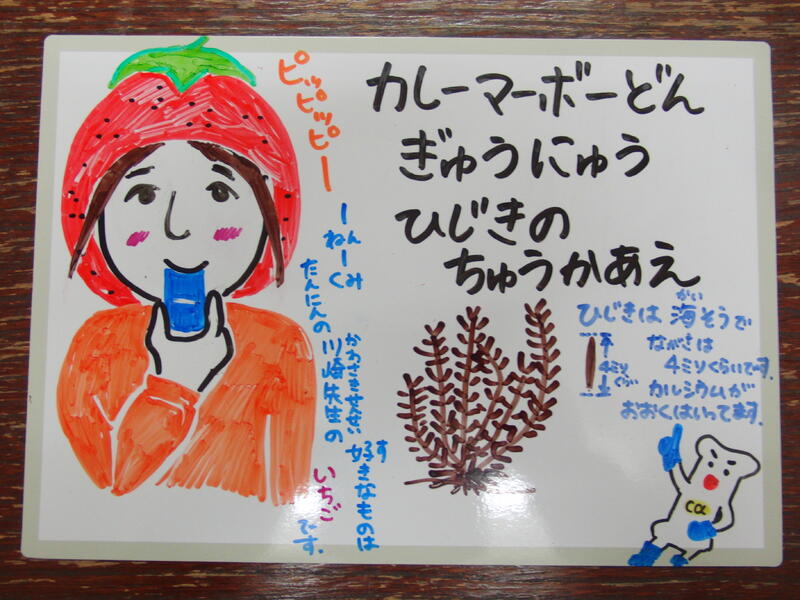 ピッピッピー
カレーマーボーどん
ぎゅうにゅう
ひじきの
ちゅうかあえ
ーねんーくみ
たんにんの川崎先生の
かわさきせんせい
好きなものは
す
いちごです。
ひじきは海そうで
かい
ながさは
4ミリくらいです。
カルシウムが
おおくはいってます。
4ミリ
くらい
Ca